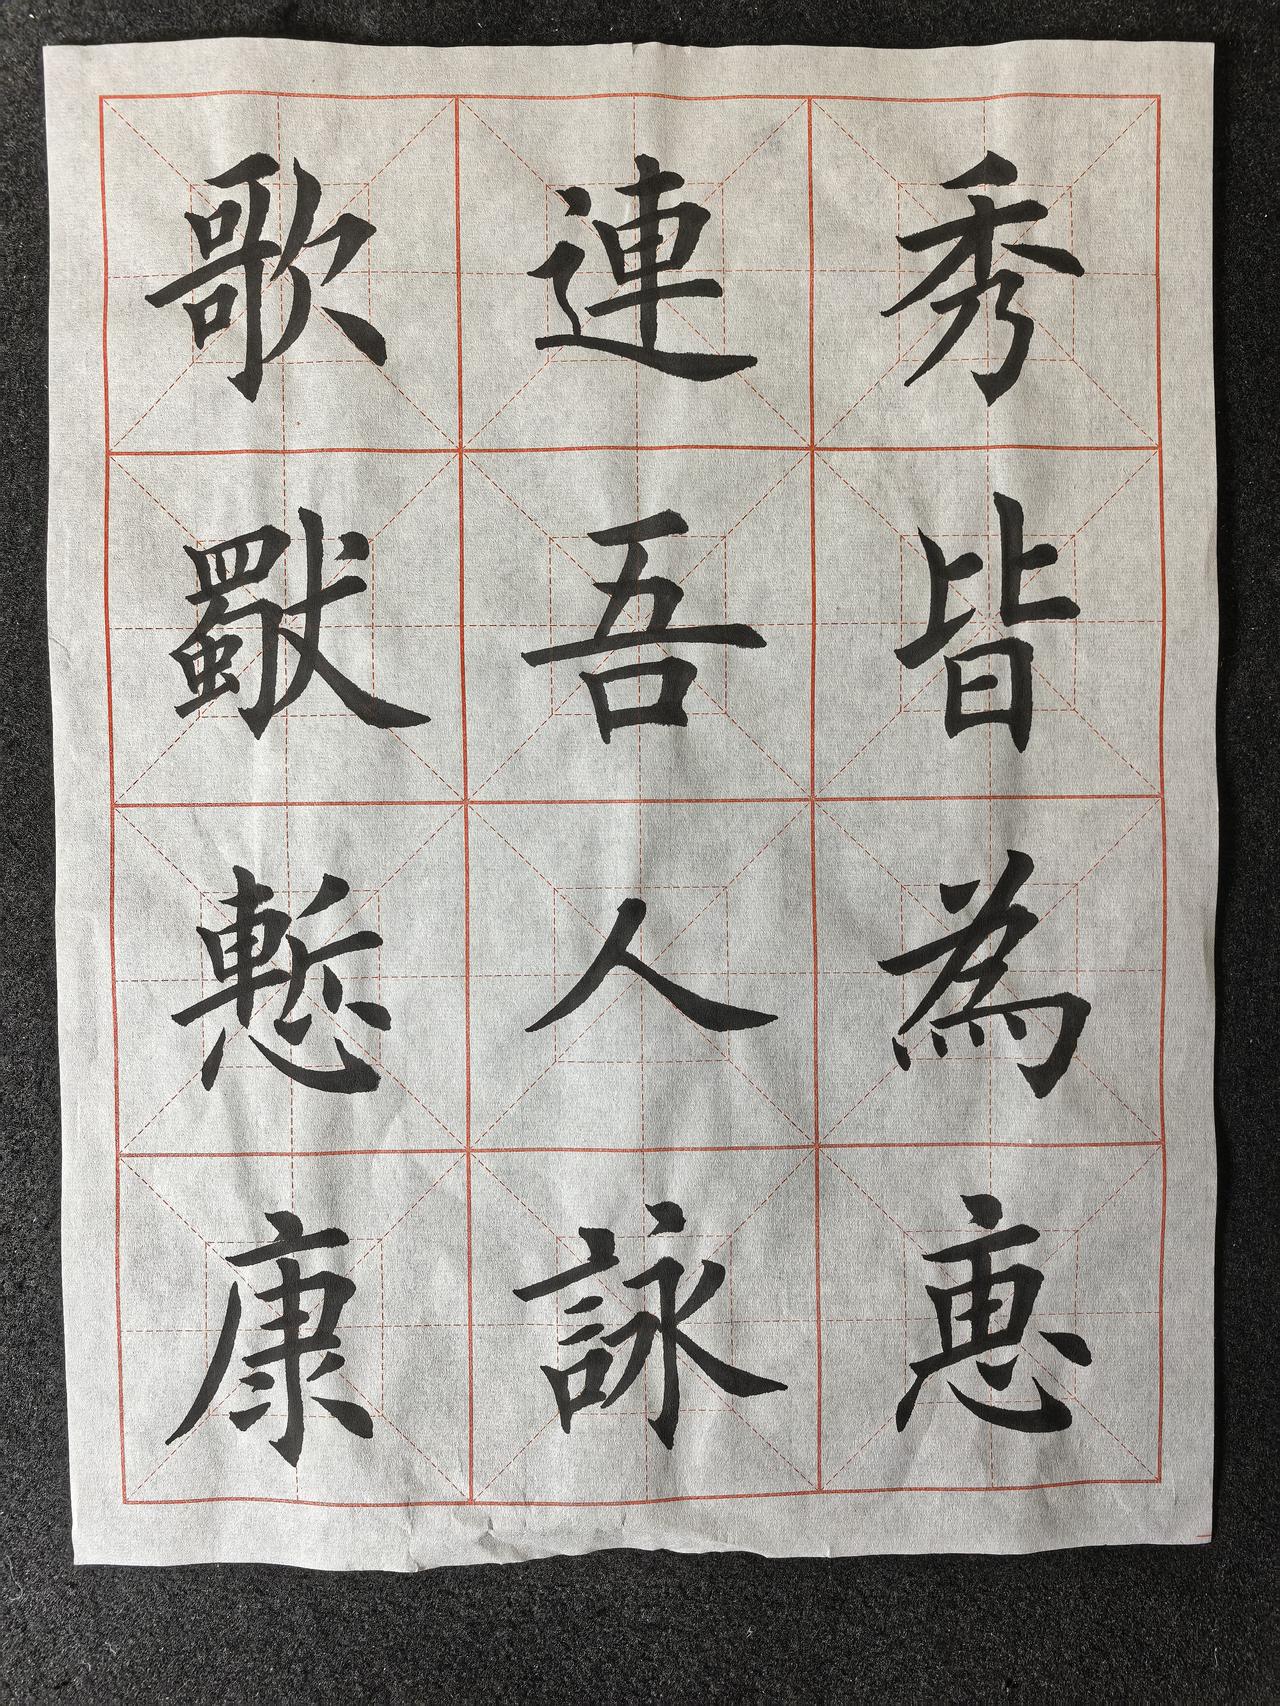 秀皆為惠
連吾人詠
歌獨慙康